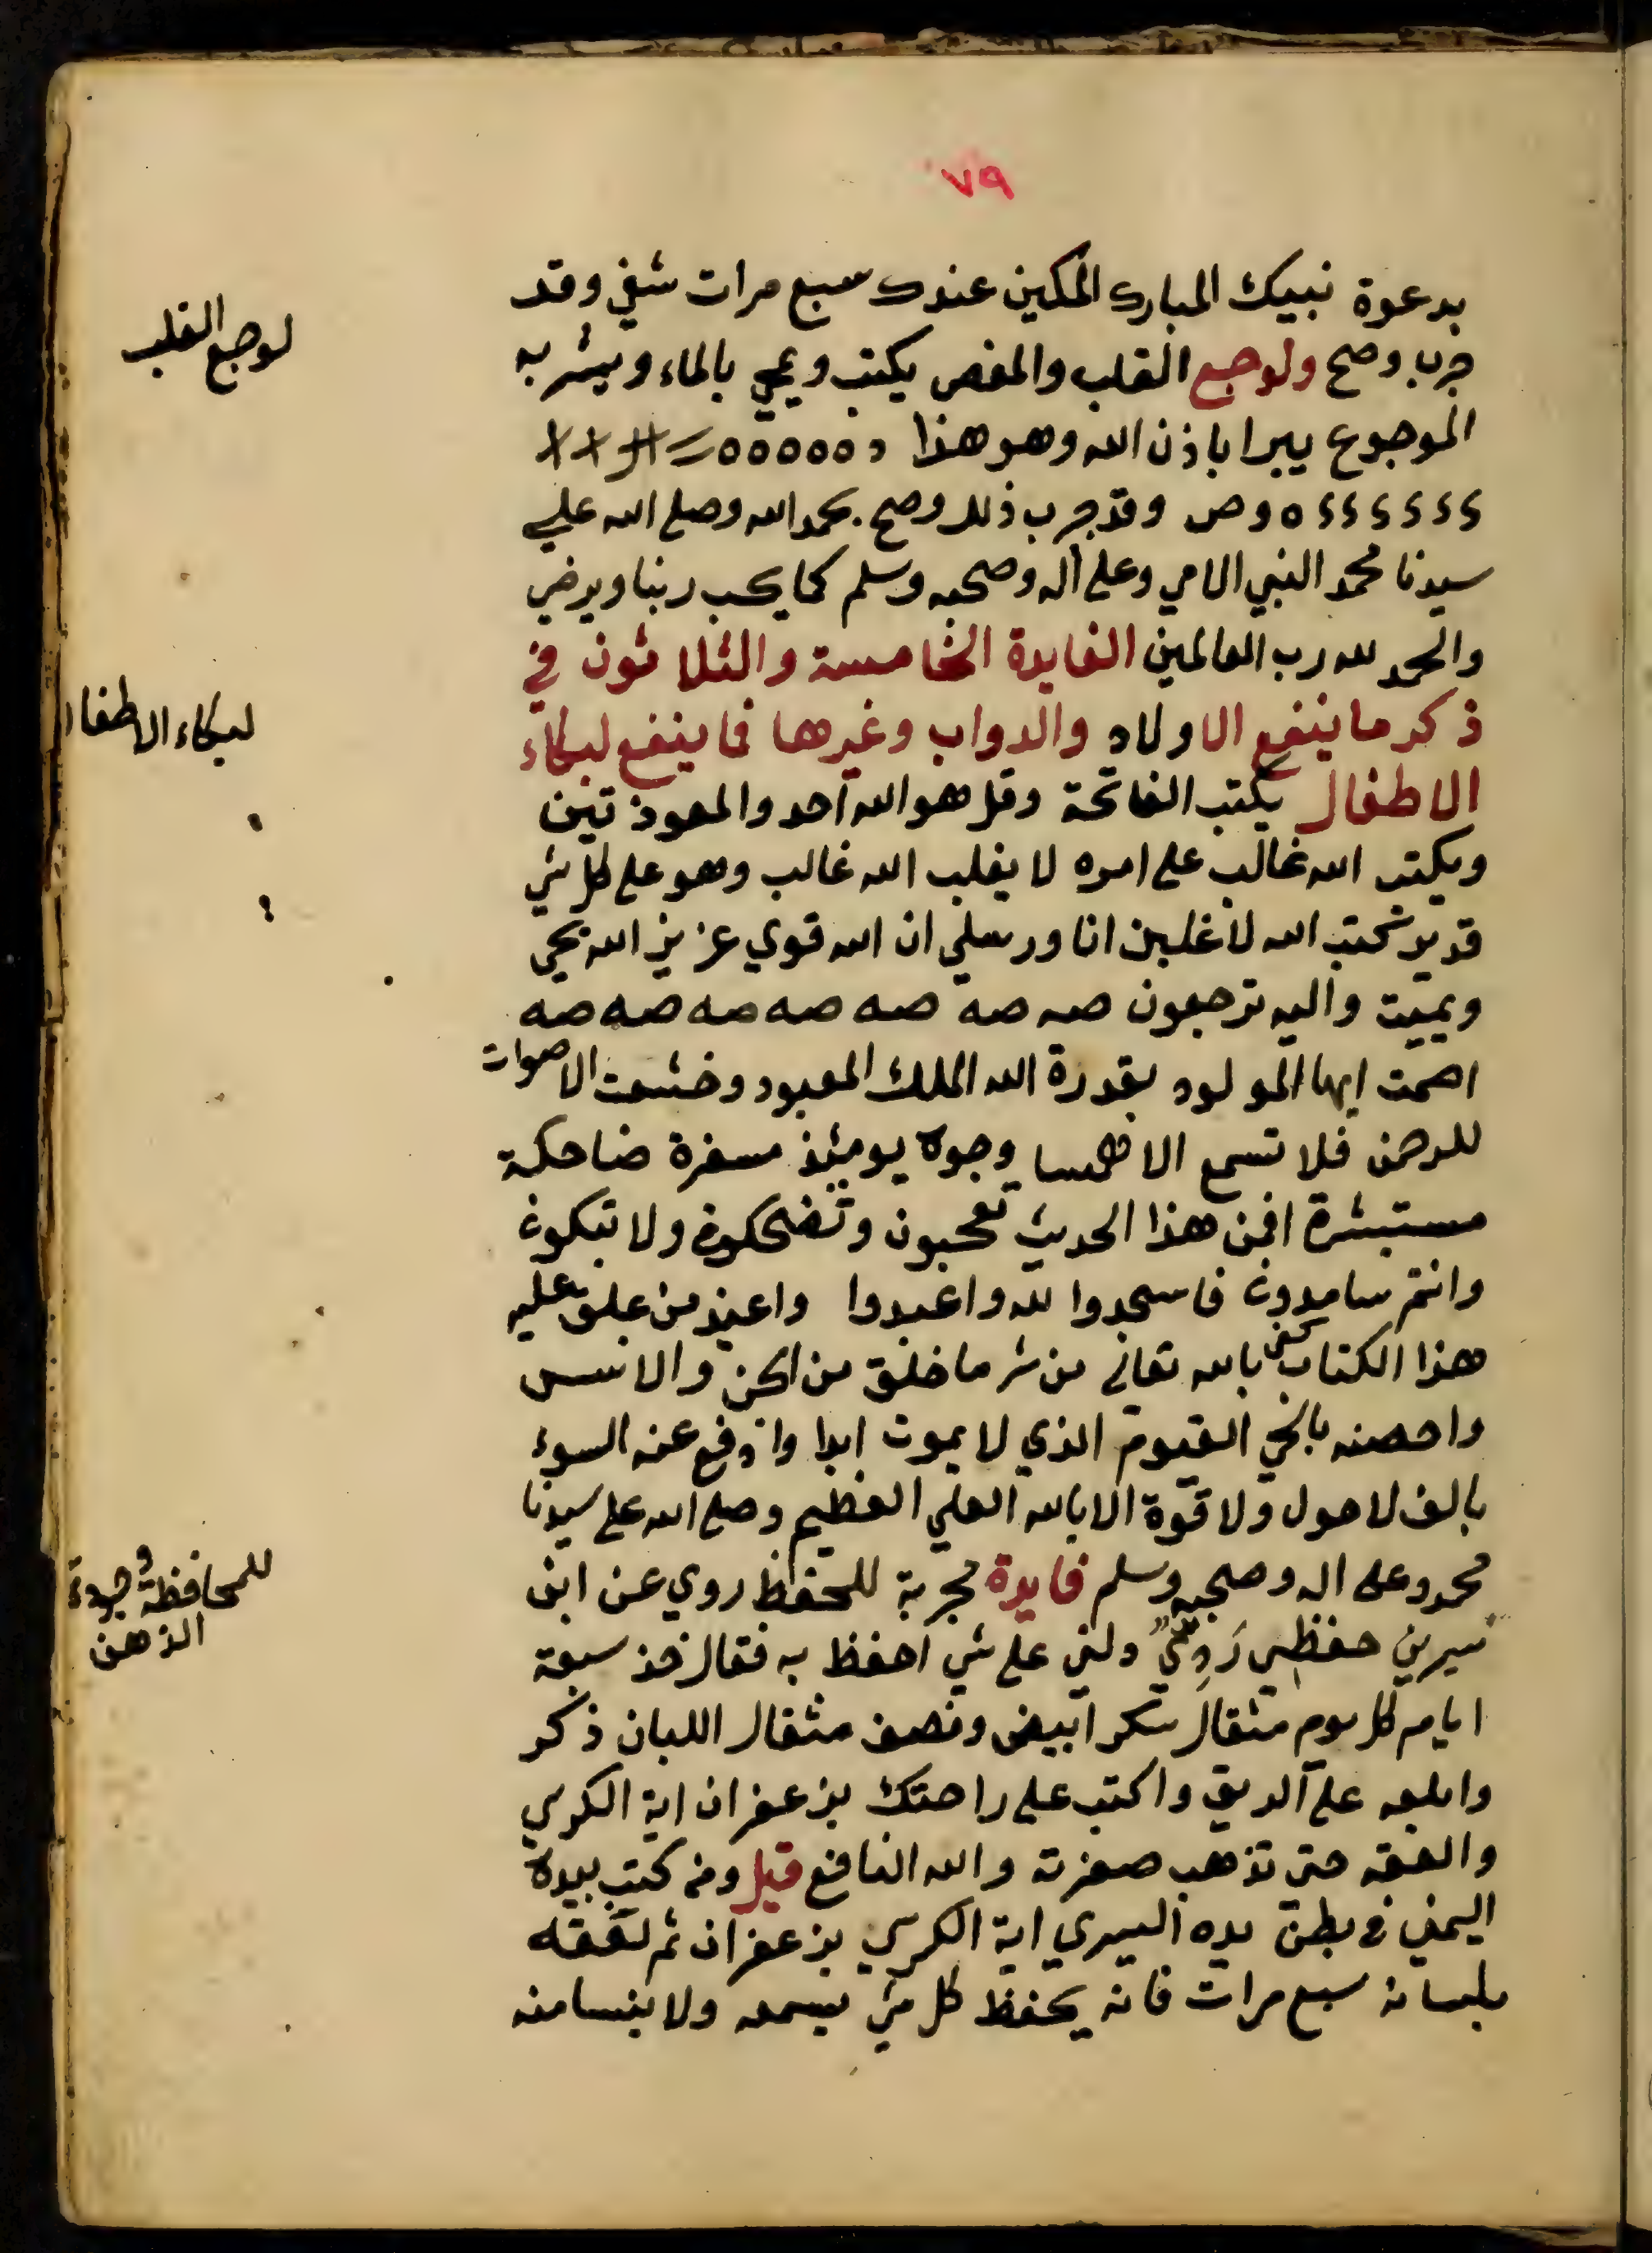 ٧٩
بدعوة نبيك المبارك المكين عندك سبع مرات شفي وقد
جرب وصح ولوجع القلب والمغص يكتب ويمحي بالماء ويشربه
الموجوع يبرا باذن الله وهو هذا
وص وقد جرب ذلك وصح بحمد الله وصلى الله علي
سيدنا محمد النبي الامي وعلى آله وصحبه وسلم كما يحب ربنا ويرضي
والحمد لله رب العالمين الفايدة الخامسة والثلاثون في
ذكر ما ينفع الاولاد والدواب وغيرها فما ينفع لبكاء
الاطفال يكتب الفاتحة وقل هو الله احد والمعوذتين
ويكتب الله غالب على امره لا يغلب الله غالب وهو على كل شي
قدير كتب الله لاغلبن انا ورسلي ان الله قوي عزيز الله يحي
ويميت واليه ترجعون صه صه صه صه صه صه صه
اصمت ايها المولود بقدرة الله الملك المعبود وخشعت الاصوات
للرحمن فلا تسمع الا همسا وجوه يومئذ مسفرة ضاحكة
مستبشرة افمن هذا الحديث تعجبون وتضحكون ولا تبكون
وانتم سامدون فاسجدوا لله واعبدوا واعيذ من علق عليه
هذا الكتاب بالله تعالى من شر ما خلق من الجن والانس
واحصنه بالحي القيوم الذي لا يموت ابدا وادفع عنه السوء
بالف لا حول ولا قوة الا بالله العلي العظيم وصلى الله على سيدنا
محمد وعلى اله وصحبه وسلم فايدة مجربة للحفظ روي عن ابن
سيرين حفظي رَدِيٌّ دلني على شي احفظ به فقال خذ سبعة
ايام كل يوم مثقال سكر ابيض ونصف مثقال اللبان ذكر
وابلعه على الريق واكتب على راحتك بزعفران اية الكرسي
والعقه حتى تذهب صفرته والله النافع قيل ومن كتب بيده
اليمني في بطن يده اليسري اية الكرسي بزعفران ثم لعقه
بلسانه سبع مرات فانه يحفظ كل شي يسمعه ولا ينسا منه
لوجع القلب
لبكاء الاطفال
للمحافظة وجودة
الذهن